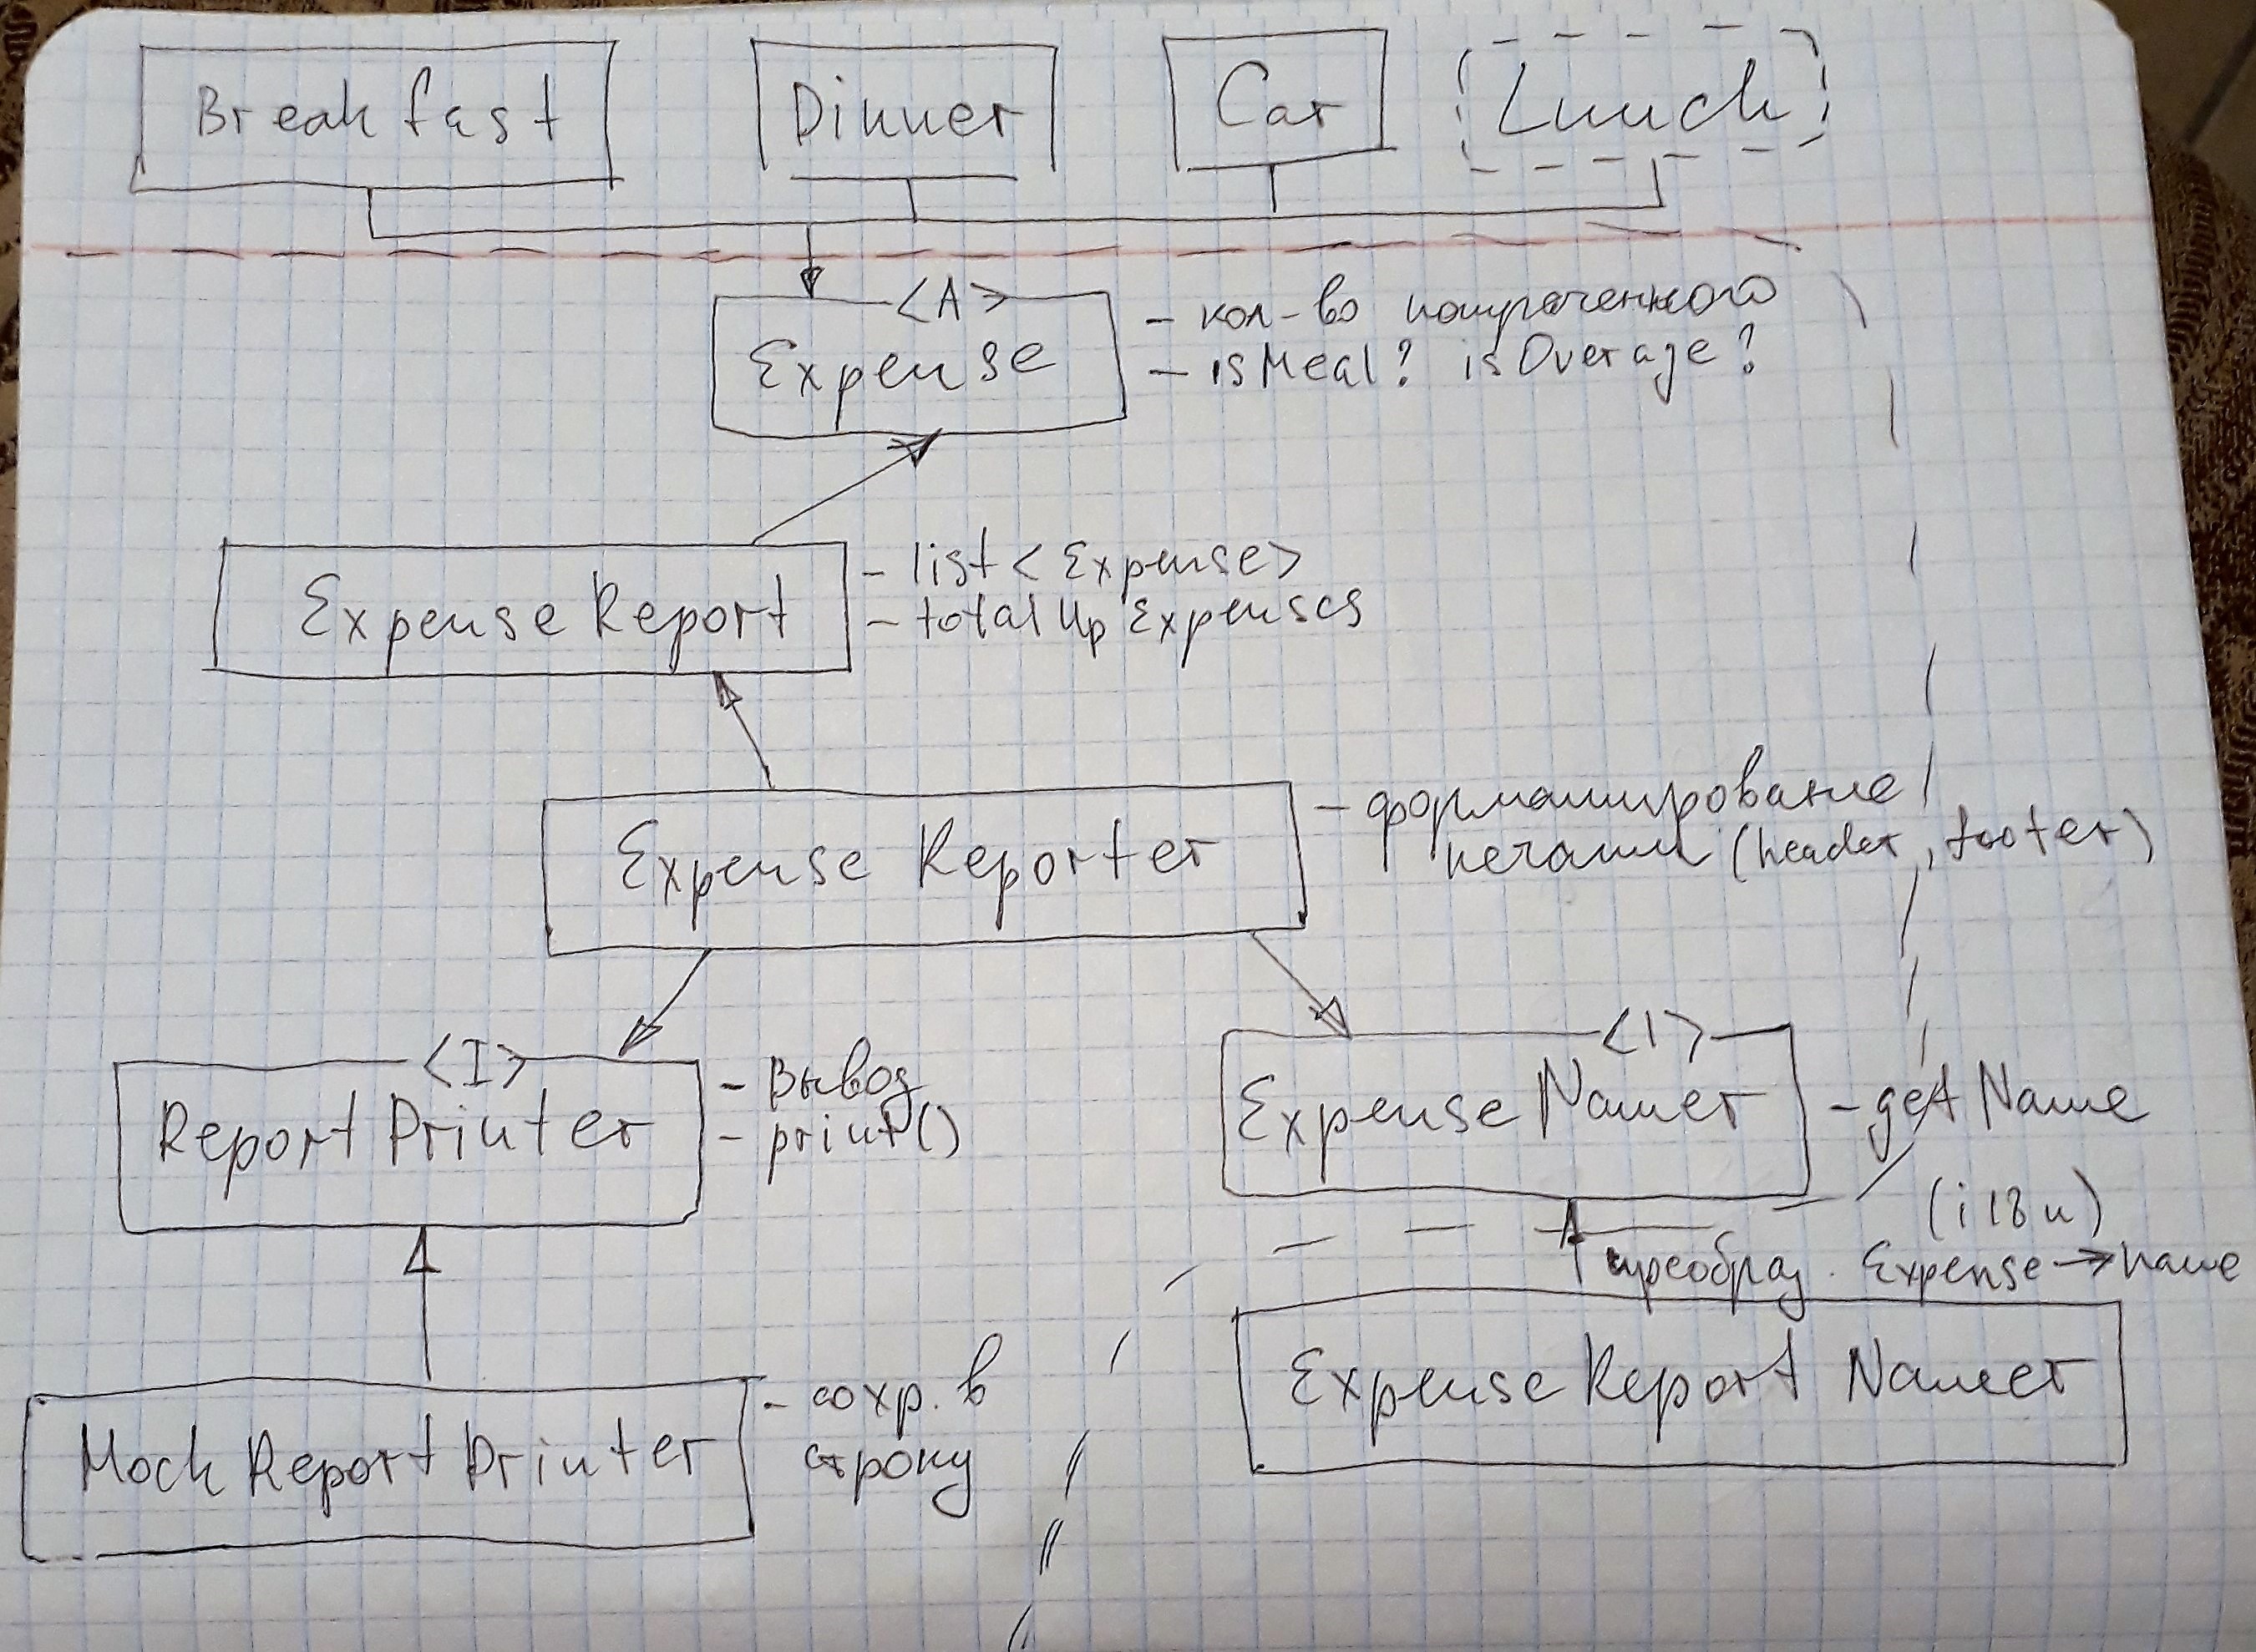 Breakfast
Dinner
Car
Lunch
<A>
Expense
- кол-во потраченного
- isMeal? isOverage?
Expense Report
- list <Expense>
- totalUpExpenses
Expense Reporter
- форматирование
печати (header, footer)
<I>
Report Printer
- Вывод
- print()
<I>
Expense Namer
- getName
(i18n)
преобраз. Expense → name
Mock Report Printer
- сохр. в
строку
Expense Report Namer